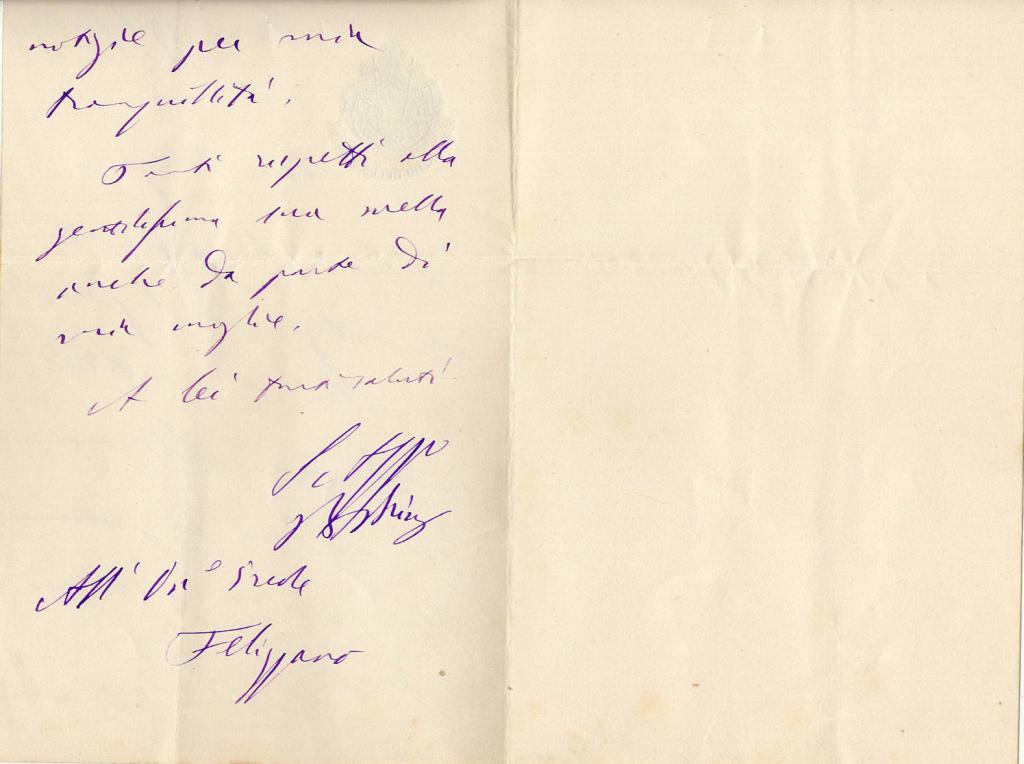 notizie per mia
tranquillità.
Tanti rispetti alla
gentilissima sua sorella
anche da parte di
mia moglie.
A lei tanti saluti
Felizzano